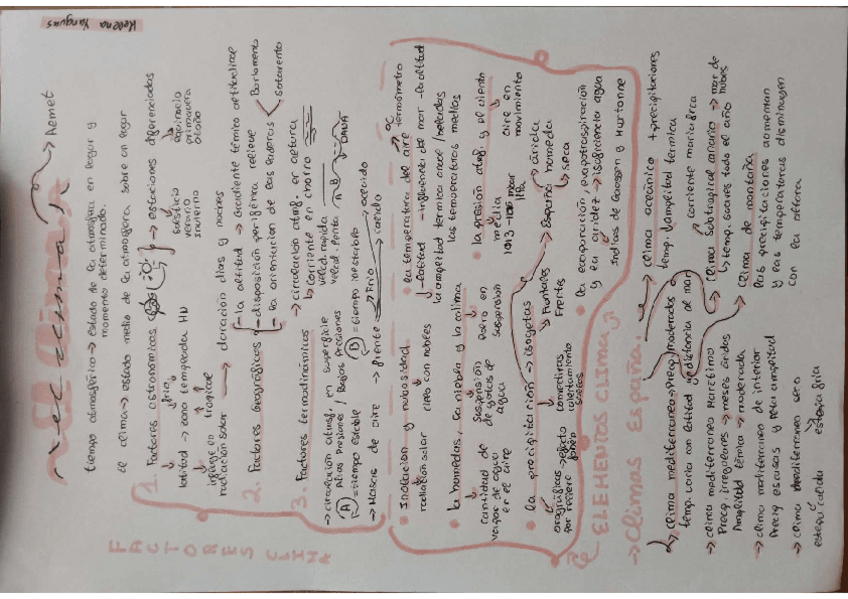 Helena Yanguas
El clima → Aemet
tiempo atmosférico → Estado de la atmósfera en lugar y
momento determinado.
El clima → estado medio de la atmósfera sobre un lugar
FACTORES CLIMA
1. Factores astronómicos → estaciones diferenciadas
latitud → zona templada HN
frio
tropical
solsticio
verano
invierno
equinocio
primavera
otoño
radiación solar → duración días y noches
2. Factores Geográficos
- la altitud → Gradiente térmico altitudinal
- disposición periférica relieve
- la orientación de las laderas
Barlovento
Sotavento
3. Factores termodinámicos
→ circulación atmsf. en altura
↳ corriente en chorro
veloc. rápida
veloc. lenta
DANA
→ circulación atmsf. en superficie
Altas Presiones / Bajas Presiones
(A) = tiempo estable (B) = tiempo inestable
→ Masas de aire → frente → Frio → cálido
• Insolación y nubosidad
radiación solar
cielo con nubes
• la temperatura del aire → ºC termómetro
- latitud - influencia del mar - altitud
la amplitud térmica anual / heladas
las temperaturas medias
• la humedad, la niebla y la calima
cantidad de
vapor de agua
en el aire
suspensión
de gotas de
agua
polvo en
suspensión
• la presión atmsf. y el viento
media
aire en
movimiento
• la precipitación → isoyetas → España
árida
humeda
seca
orográficas → efecto
por relieve
convectivas
calentamiento
suelos
Frontales
Frentes
• la evaporación, evapotraspiración
y la aridez → insuficiencia agua
Indices de Gaussen y Martonne
ELEMENTOS CLIMA
→ Climas España.
→ clima mediterraneo → Precip/moderadas
temp. varia con latitud y distancia al mar
→ clima mediterraneo Marítimo
Precip. irregulares → meses áridos
Amplitud térmica → moderada
→ clima mediterraneo de interior
Precip escasas y alta amplitud
→ clima mediterraneo seco
estepa calida estepa fria
→ clima oceánico + precipitaciones
temp. ↓ amplitud térmica
→ clima subtropical canario → mar de nubes
corriente marina fría
↳ temp. suaves todo el año
→ clima de montaña
Las precipitaciones aumentan
y las temperaturas disminuyen
con la altura